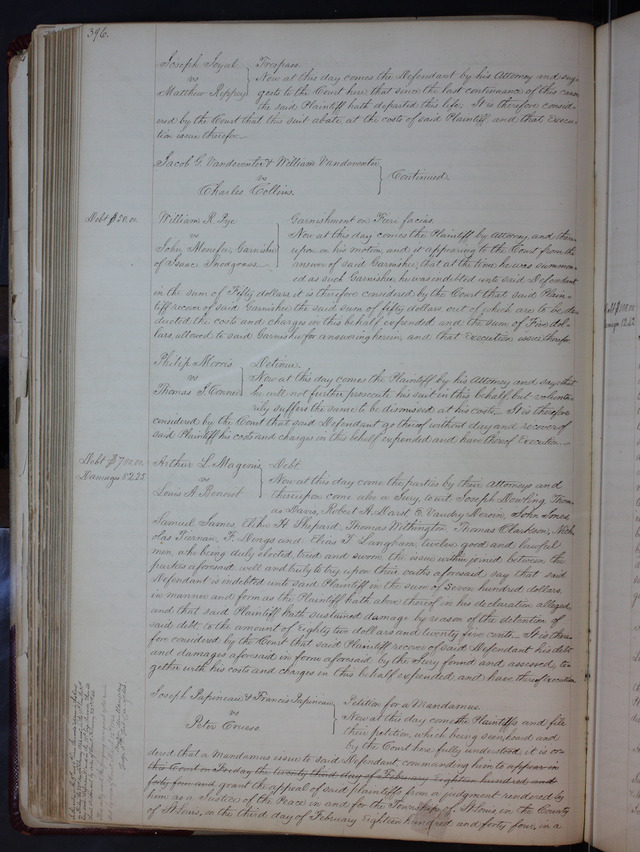 396.
Joseph Soyal } Trespass.
vs Now at this day comes the Defendant by his Attorney and sug-
Matthew Rippey gests to the Court here that since the last continuance of this cause
the said Plaintiff hath departed this life. It is therefore consid-
ered by the Court that this suit abate, at the costs of said Plaintiff and that Execu-
tion issue therefor.
Jacob G. Vandeventer & William Vandeventer
vs } Continued.
Charles Collins.
Debt $50.00. William R. Pye Garnishment on Fieri facias.
vs Now at this day comes the Plaintiff by Attorney and there-
John, Garnishee upon on his motion, and it appearing to the Court from the
of Isaac Snodgrass. answer of said Garnishee, that at the time he was summon-
ed as such Garnishee, he was indebted unto said Defendant
in the sum of Fifty dollars, it is therefore considered by the Court that said Plain-
tiff recover of said Garnishee the said sum of fifty dollars out of which are to be de-
ducted the costs and charges in this behalf expended and the sum of Five dol-
lars, allowed to said Garnishee for answering herein, and that Execution issue therefor.
Philip Morris Detinue.
vs } Now at this day comes the Plaintiff by his Attorney and says that
Thomas J. Conner he will not further prosecute his suit in this behalf but volunta-
rily suffers the same to be dismissed at his costs. It is therefore
considered by the Court that said Defendant go thereof without day and recover of
said Plaintiff his costs and charges in this behalf expended and have thereof Execution.
Debt $700.00. Arthur L. Magenis Debt
Damages 82.25. vs } Now at this day come the parties by their Attorneys and
Louis A. Benoist thereupon come also a Jury, to wit: Joseph Dowling, Thom-
as Davis, Robert A. Marst, E. Vaudry Mercin, John Jones,
Samuel James, Elihu H. Shepard, Thomas Withington, Thomas Clarkson, Nich-
olas Tiernan, F. and Elias T. Langham, twelve good and lawful
men, who being duly elected, tried and sworn, the issue within joined between the
parties aforesaid well and truly to try upon their oaths aforesaid say that said
Defendant is indebted unto said Plaintiff in the sum of Seven hundred dollars,
in manner and form as the Plaintiff hath above thereof in his declaration alleged,
and that said Plaintiff hath sustained damage by reason of the detention of
said debt, to the amount of Eighty two dollars and twenty five cents. It is there-
fore considered by the Court that said Plaintiff recover of said Defendant his debt
and damages aforesaid in form aforesaid by the Jury found and assessed, to-
gether with his costs and charges in this behalf expended, and have thereof execution.
Joseph Papineau & Francis Papineau Petition for a Mandamus.
vs } Now at this day come the Plaintiffs and file
Peter their petition, which being seen, heard and
by the Court here fully understood, it is or-
dered that a Mandamus issue to said Defendant, commanding him to appear in
this Court on Friday the twenty third day of February Eighteen hundred and
forty four and grant the appeal of said plaintiffs from a judgment rendered by
him as a Justice of the Peace in and for the Township of St Louis, in the County
of St Louis, on the third day of February Eighteen hundred and forty four, in a